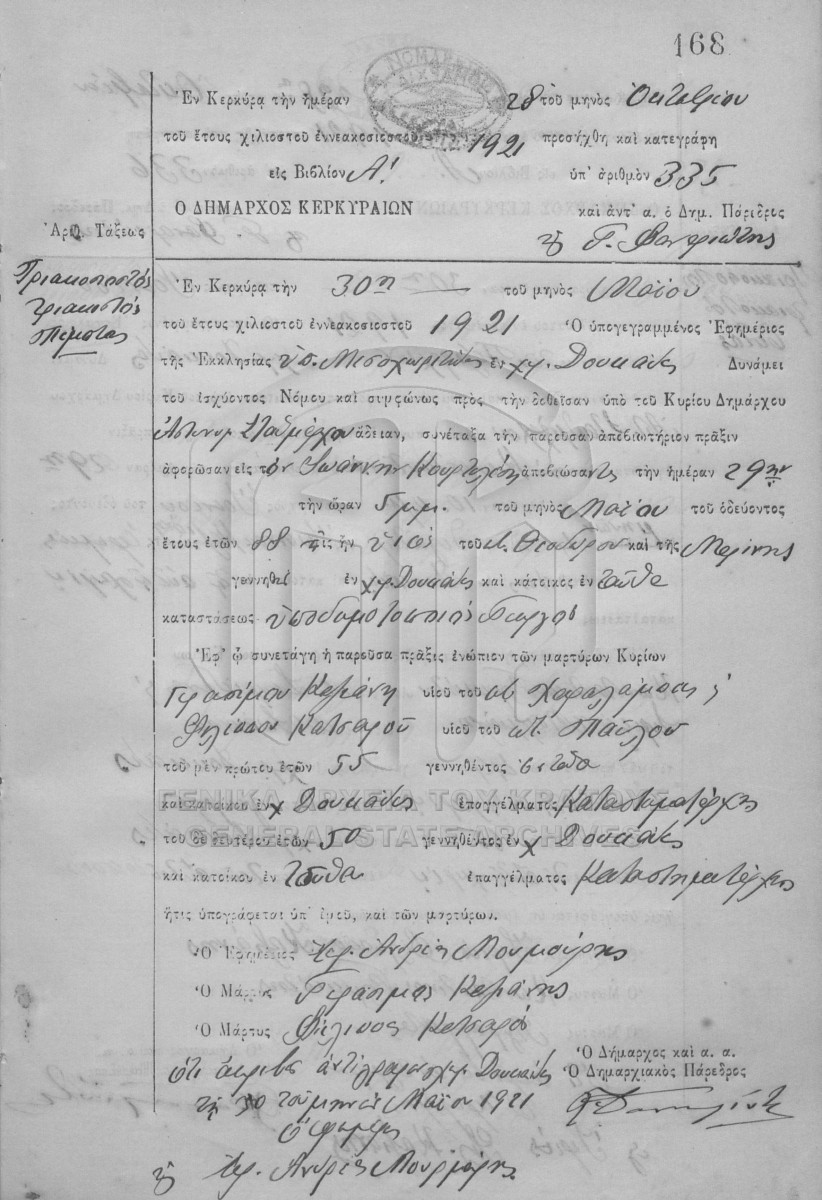 168
Ἐν Κερκύρᾳ τὴν ἡμέραν 28 τοῦ μηνὸς Ὀκτωβρίου
τοῦ ἔτους χιλιοστοῦ ἐννεακοσιοστοῦ 1921 προσήχθη καὶ κατεγράφη
εἰς Βιβλίον Α! ὑπ' ἀριθμὸν 335
Ο ΔΗΜΑΡΧΟΣ ΚΕΡΚΥΡΑΙΩΝ
καὶ ἀντ' α. ὁ Δημ. Πάρεδρος
Ἀριθ. Τάξεως
Τριακοσιοστός
τριακοστός
πέμπτος
Ἐν Κερκύρᾳ τὴν 30η τοῦ μηνὸς Μαΐου
τοῦ ἔτους χιλιοστοῦ ἐννεακοσιοστοῦ 1921 Ὁ ὑπογεγραμμένος Ἐφημέριος
τῆς Ἐκκλησίας ἐν χ. Δουκάδες Δυνάμει
τοῦ ἰσχύοντος Νόμου καὶ συμφώνως πρὸς τὴν δοθεῖσαν ὑπὸ τοῦ Κυρίου Δημάρχου
ἄδειαν, συνέταξα τὴν παροῦσαν ἀποβιωτήριον πρᾶξιν
ἀφορῶσαν εἰς τὸν Ἰωάννην ἀποβιώσαντα τὴν ἡμέραν 29ην
τὴν ὥραν 5 μ.μ. τοῦ μηνὸς Μαΐου τοῦ ὁδεύοντος
ἔτους ἐτῶν 88 τις ἦν υἱός τοῦ Θεοδώρου καὶ τῆς
γεννηθεὶς ἐν χ. Δουκάδες καὶ κάτοικος ἐν ταῦθα
καταστάσεως Γεωργός
Ἐφ' ᾧ συνετάγη ἡ παροῦσα πρᾶξις ἐνώπιον τῶν μαρτύρων Κυρίων
Γερασίμου υἱοῦ τοῦ Χαραλάμπους
Κατσαροῦ υἱοῦ τοῦ Παύλου
τοῦ μὲν πρώτου ἐτῶν 55 γεννηθέντος ἐνταῦθα
καὶ κατοίκου ἐν χ Δουκάδες ἐπαγγέλματος Καταστηματάρχης
ΓΕΝΙΚΑ ΑΡΧΕΙΑ ΤΟΥ ΚΡΑΤΟΥΣ
GENERAL STATE ARCHIVES
τοῦ δὲ δευτέρου ἐτῶν 50 γεννηθέντος ἐν χ Δουκάδες
καὶ κατοίκου ἐν ταῦθα ἐπαγγέλματος Καταστηματάρχης
ἥτις ὑπογράφεται ὑπ' ἐμοῦ, καὶ τῶν μαρτύρων.
Ὁ Ἐφημέριος Ἱερ. Ἀνδρέας
Ὁ Μάρτυς Γεράσιμος
Ὁ Μάρτυς Κατσαρός
ὅτι ἀκριβὲς ἀντίγραφον Δουκάδες
τῇ 30 τοῦ μηνὸς Μαΐου 1921
Ὁ Δήμαρχος καὶ α. α.
Ὁ Δημαρχιακὸς Πάρεδρος
Ὁ ἐφημέριος
Ἱερ. Ἀνδρέας